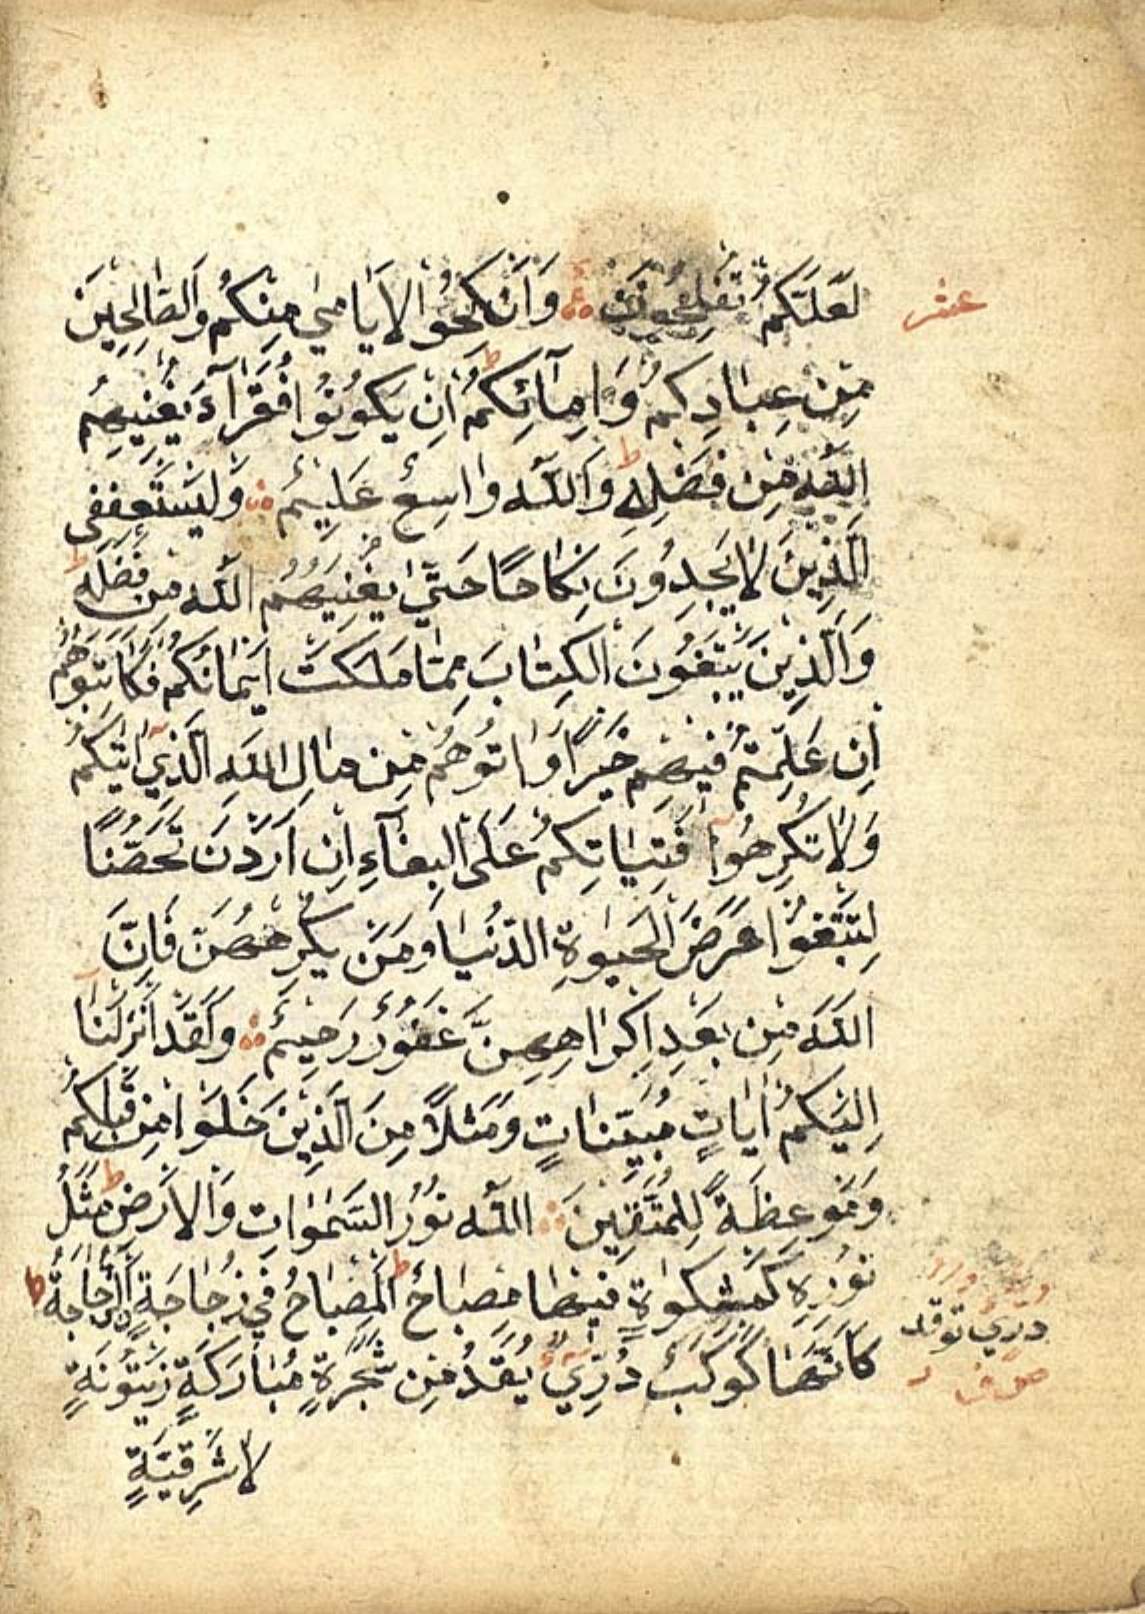 لَعَلَّكُمْ تُفْلِحُونَ وَأَنْكِحُوا الْأَيَامٰى مِنْكُمْ وَالصَّالِحِينَ
عشر
مِنْ عِبَادِكُمْ وَإِمَآئِكُمْ اِنْ يَكُونُوا فُقَرَآءَ يُغْنِهِمُ
اللّٰهُ مِنْ فَضْلِهِ وَاللّٰهُ وَاسِعٌ عَلِيمٌ وَلْيَسْتَعْفِفِ
الَّذِينَ لَا يَجِدُونَ نِكَاحًا حَتّٰى يُغْنِيَهُمُ اللّٰهُ مِنْ فَضْلِهِ
وَالَّذِينَ يَبْتَغُونَ الْكِتَابَ مِمَّا مَلَكَتْ اَيْمَانُكُمْ فَكَاتِبُوهُمْ
اِنْ عَلِمْتُمْ فِيهِمْ خَيْرًا وَاٰتُوهُمْ مِنْ مَالِ اللّٰهِ الَّذِي اٰتٰيكُمْ
وَلَا تُكْرِهُوا فَتَيَاتِكُمْ عَلَى الْبِغَآءِ اِنْ اَرَدْنَ تَحَصُّنًا
لِتَبْتَغُوا عَرَضَ الْحَيٰوةِ الدُّنْيَا وَمَنْ يُكْرِهْهُنَّ فَاِنَّ
اللّٰهَ مِنْ بَعْدِ اِكْرَاهِهِنَّ غَفُورٌ رَحِيمٌ وَلَقَدْ اَنْزَلْنَا
اِلَيْكُمْ اٰيَاتٍ مُبَيِّنَاتٍ وَمَثَلًا مِنَ الَّذِينَ خَلَوْا مِنْ قَبْلِكُمْ
وَمَوْعِظَةً لِلْمُتَّقِينَ اللّٰهُ نُورُ السَّمٰوَاتِ وَالْاَرْضِ مَثَلُ
نُورِهِ كَمِشْكٰوةٍ فِيهَا مِصْبَاحٌ الْمِصْبَاحُ فِي زُجَاجَةٍ اَلزُّجَاجَةُ
كَاَنَّهَا كَوْكَبٌ دُرِّيٌّ يُوقَدُ مِنْ شَجَرَةٍ مُبَارَكَةٍ زَيْتُونَةٍ
درئ توقد
لَا شَرْقِيَّةٍ